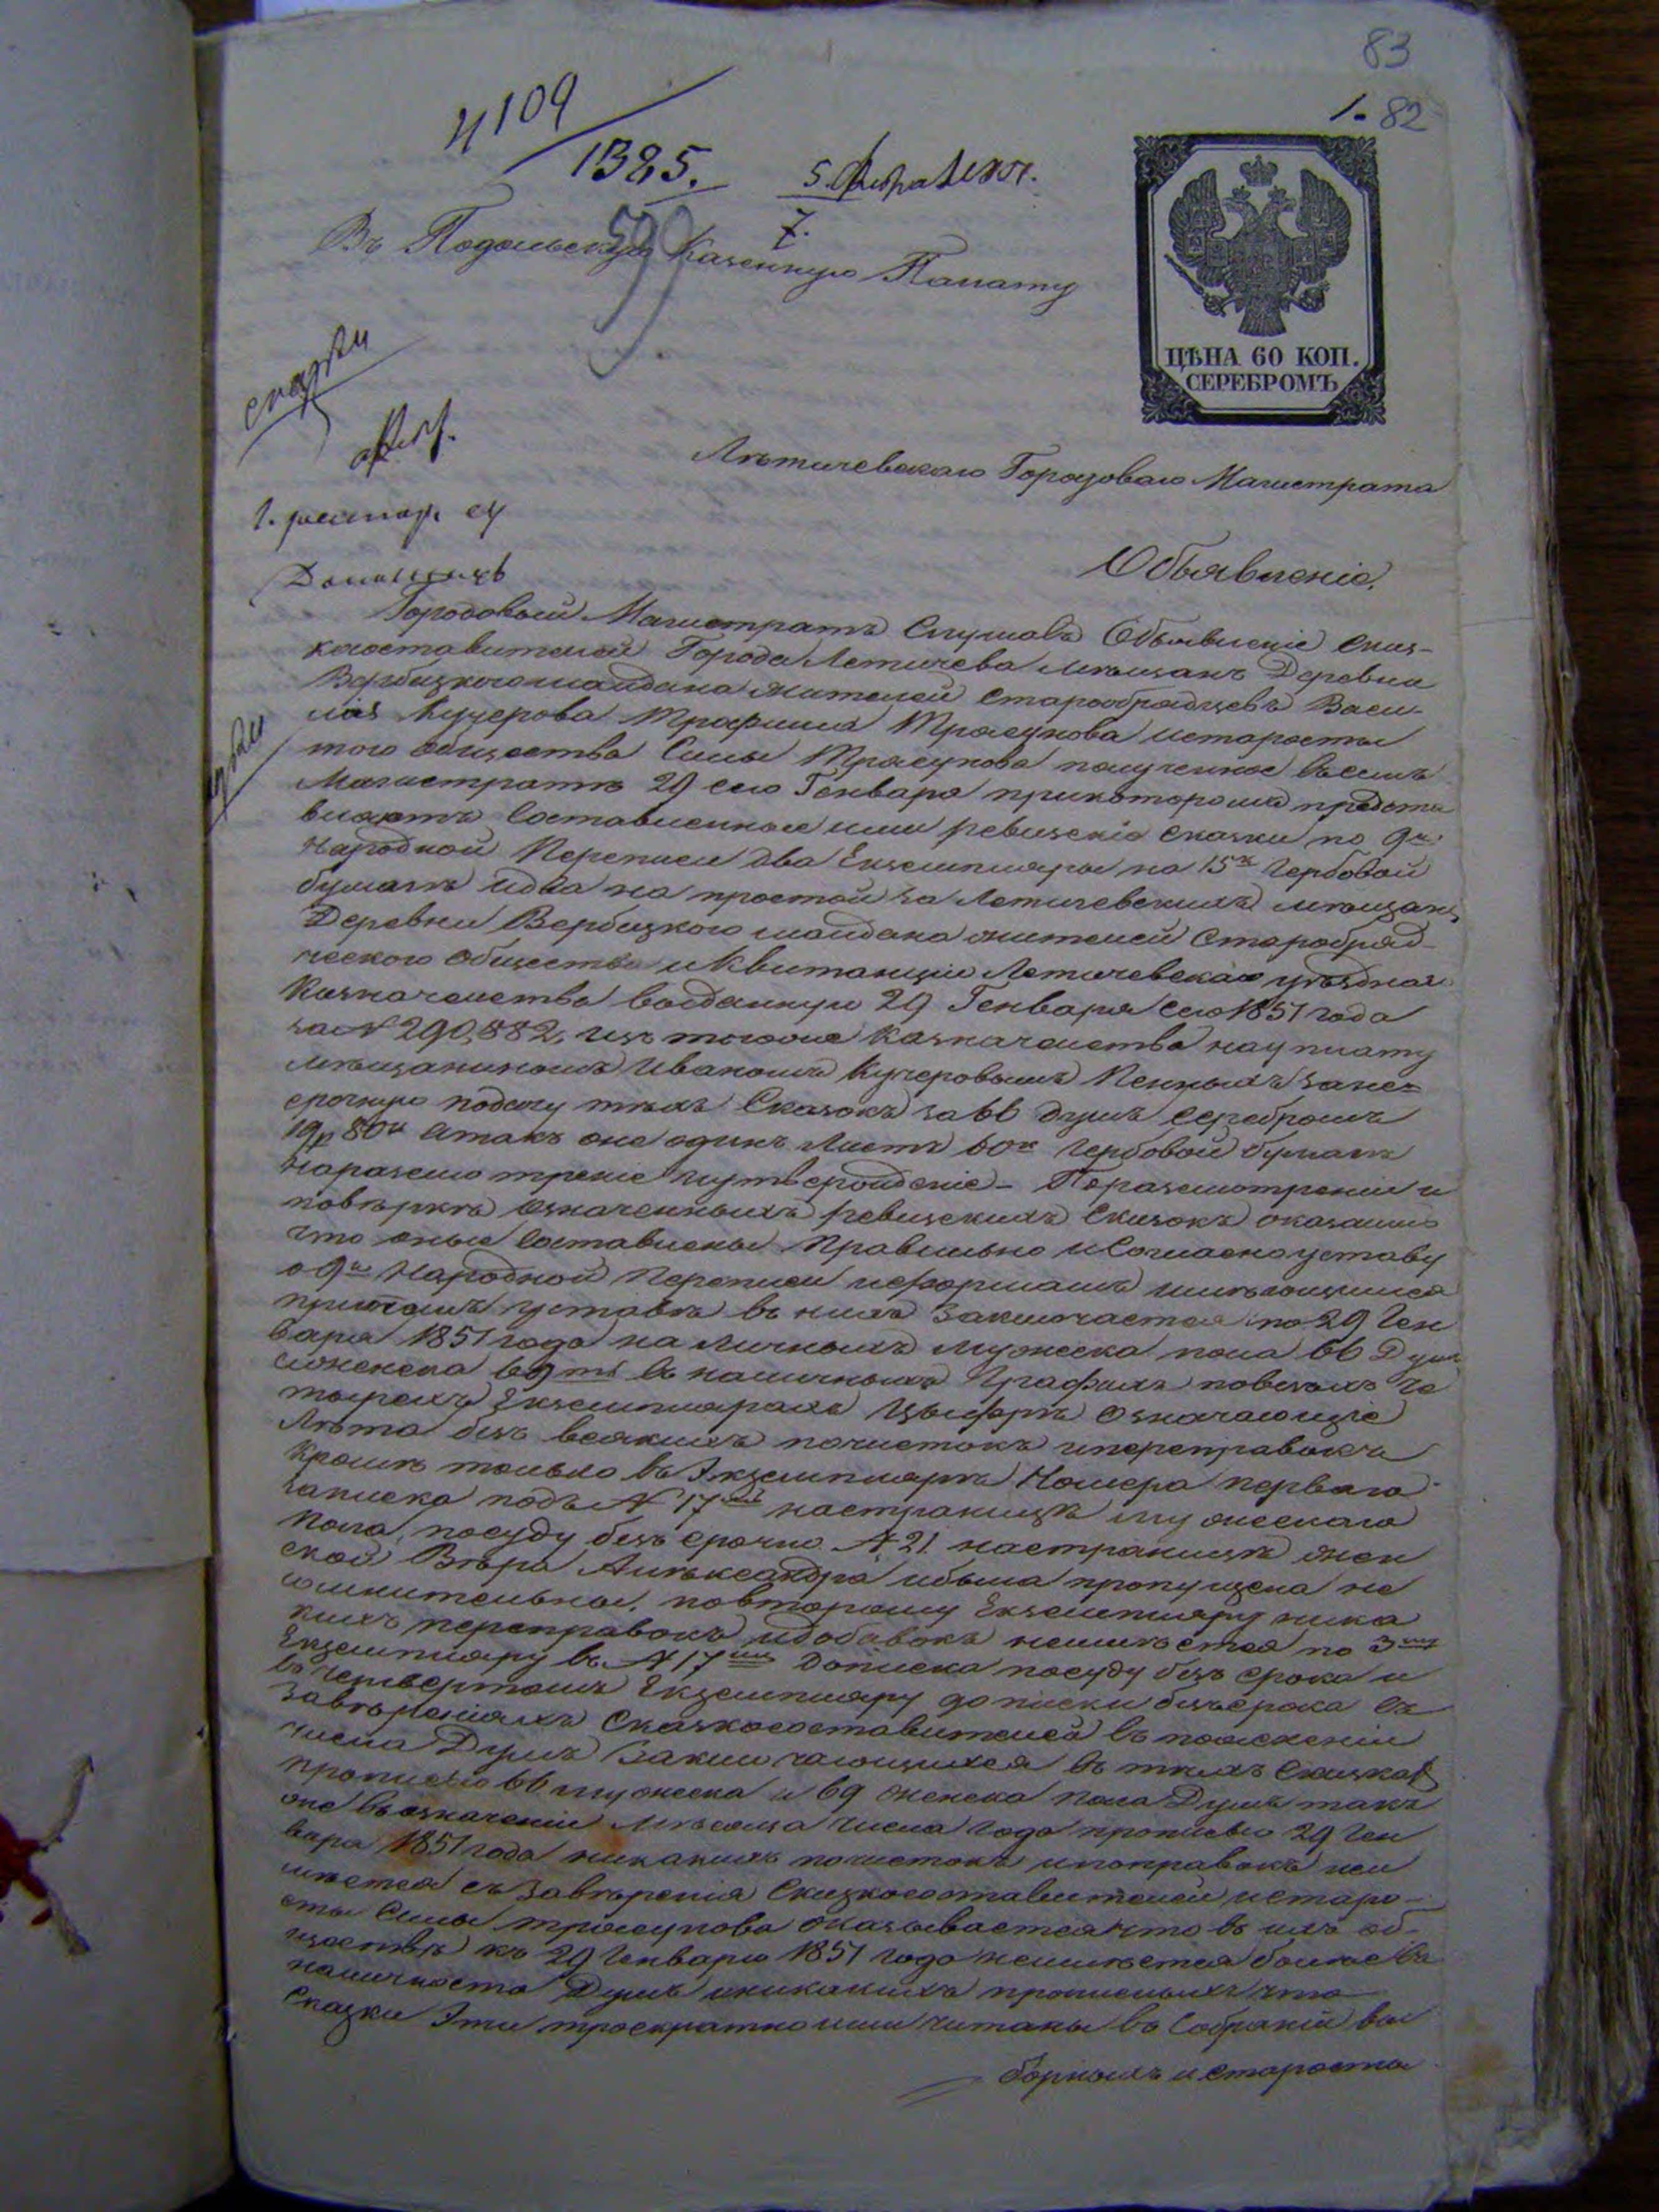 83
1. 82
4109
1325.
5. Февраля 1851.
7.
Въ Подольскую Казенную Палату
ЦѢНА 60 КОП.
СЕРЕБРОМЪ
Лѣтичевскаго Городоваго Магистрата
Объявленіе.
Городовый Магистратъ Слушавъ Объявленіе Сказ-
косоставителей Города Летичева мѣщанъ Деревни
Вербицкого майдана жителей Старообрядцевъ Васи-
лія Кучерова Трофима Трясунова и старосты
того общества Силы Трясунова полученное въ семъ
Магистратѣ 29 сего Генваря при которомъ предста
вляютъ Составленные ими ревизскіе сказки по 9й
Народной Переписи два Екземпляры на 15к Гербовой
бумагѣ и два на простой за Летичевскихъ мѣщанъ
Деревни Вербицкого майдана жителей Старобряд-
ческого Общества и Квитанцію Летичевскаго уѣзднаго
Казначейства выданную 29 Генваря сего 1851 года
за № 290,882, изъ того же Казначейства на уплату
мѣщаниномъ Иваномъ Кучеровымъ Пенныхъ за не-
срочную подачу тѣхъ Сказокъ за 66 душъ серебромъ
19р 80к а такъ же одинъ Листъ 60к Гербовой бумаги
на разсмотреніе и утвержденіе – По разсмотреніи и
повѣркѣ означенныхъ ревизскихъ Сказокъ оказалось
что оные Составлены Правильно и Согласно уставу
о 9й Народной Переписи и формамъ имѣющимся
при томъ уставѣ въ нихъ Заключается по 29 Ген
варя 1851 года на личныхъ мужеска пола 66 Душ
и женска 69ть въ наличныхъ Графахъ по всѣмъ че
тырехъ Екземплярахъ Цыфры Означающіе
Лѣта безъ всякихъ почистокъ и переправокъ
Кромѣ только въ Экземплярѣ Номера перваго
записка подъ № 17мъ на страницѣ мужескаго
Пола, по суду безъ срочно № 21 на страницѣ жен
ской Вѣра Алѣксандра и была пропущена не
умнительны, по второму Екземпляру ника
кихъ переправокъ и добавокъ неимѣется по 3му
Екземпляру въ № 17мъ Дописка по суду безъ срока и
въ четвертомъ Екземпляру дописки безъ срока Съ
Завѣреніяхъ Сказкосоставителей въ поясненіи
числа Душъ Заключающихся въ тѣхъ сказкахъ
прописью 66 мужеска и 69 женска пола Душъ такъ
же въ означеніи Мѣсяца Числа Года прописью 29 Ген
варя 1851 года никакихъ почистокъ и поправокъ неи
мѣется съ Завѣренія Сказкосоставителей и Старо-
сты Силы Трясунова оказывается что въ ихъ об-
ществѣ къ 29 Генварю 1851 года неимѣется болѣе въ
наличности Душъ и никакихъ прописныхъ что
Сказки Эти троекратно ими читаны въ Собраніи вы
борныхъ и старосты